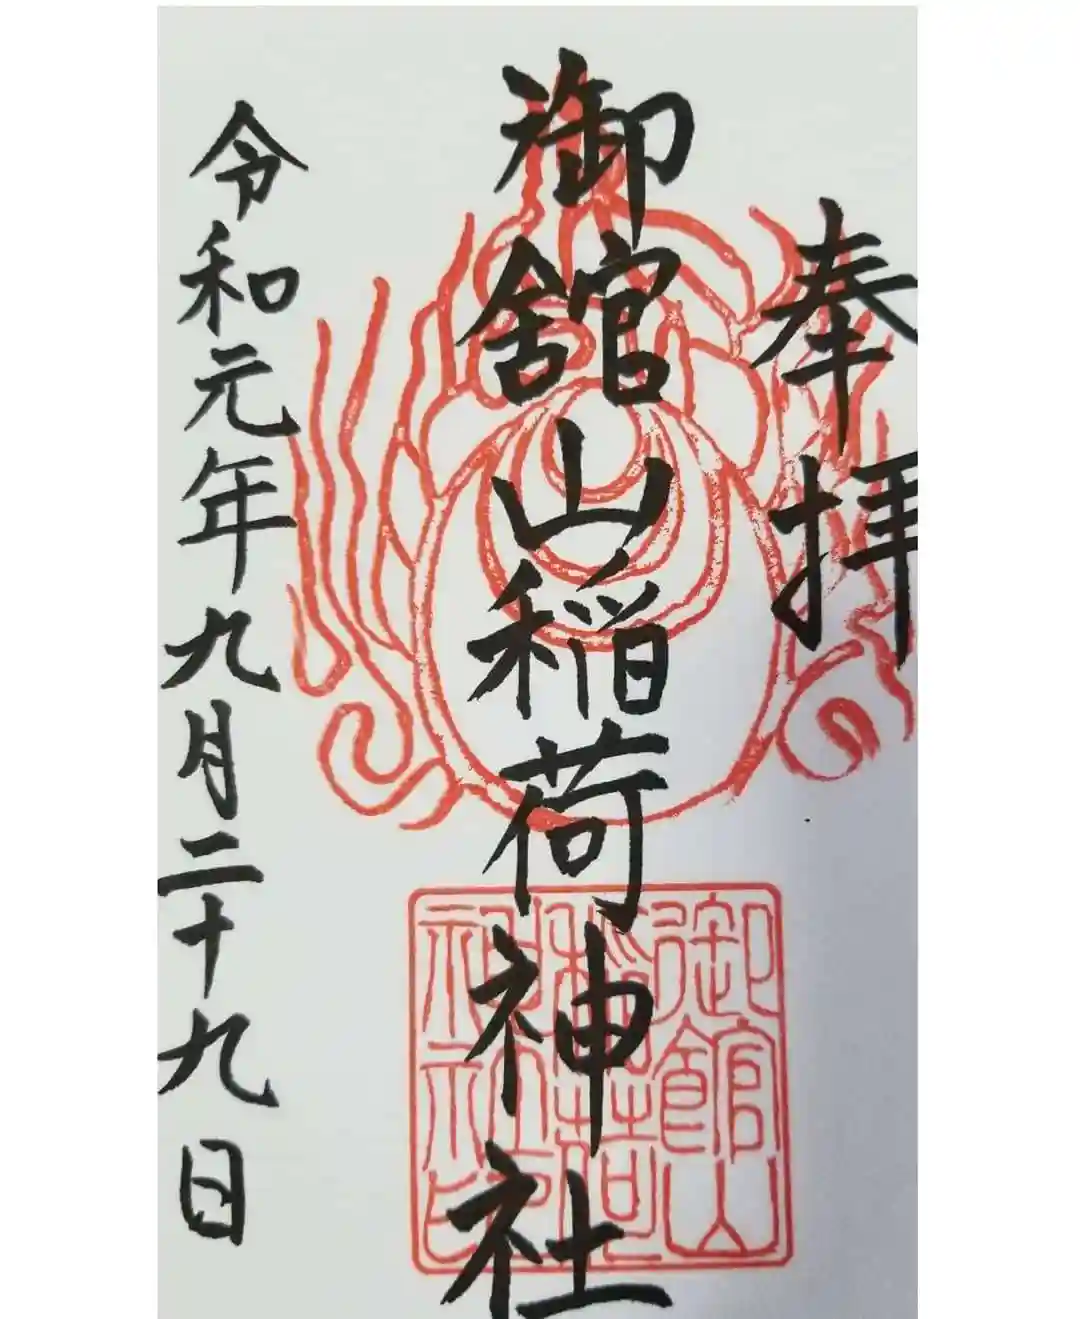 奉拝
御舘山稲荷神社
令和元年九月二十九日
御館山
稲荷
神社印